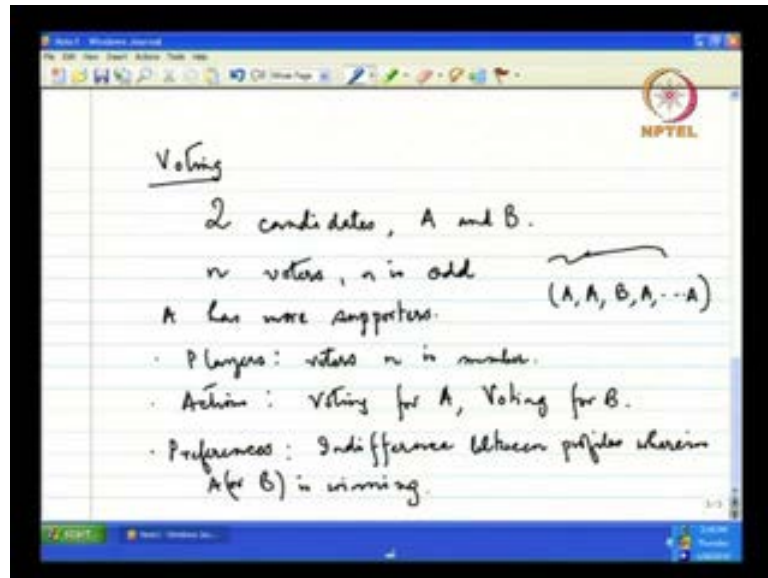 Note1 - Windows Journal
NPTEL
Voting
2 candidates, A and B.
n voters, n is odd
(A, A, B, A, ... A)
A has more supporters.
· Players: voters n in number.
· Actions: Voting for A, Voting for B.
· Preferences: Indifference between profiles wherein
A (or B) is winning.